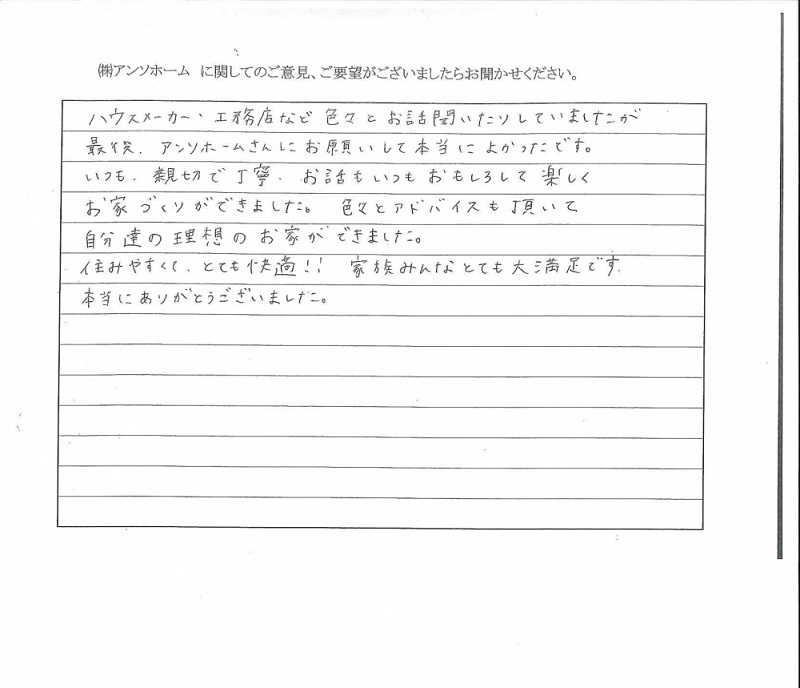 ㈱アンソホーム に関してのご意見、ご要望がございましたらお聞かせください。
ハウスメーカー・工務店など色々とお話聞いたりしていましたが
最後、アンソホームさんにお願いして本当によかったです。
いつも、親切で丁寧、お話もいつもおもしろして楽しく
お家づくりができました。 色々とアドバイスも頂いて
自分達の理想のお家ができました。
住みやすくて、とても快適!! 家族みんなとても大満足です.
本当にありがとうございました。